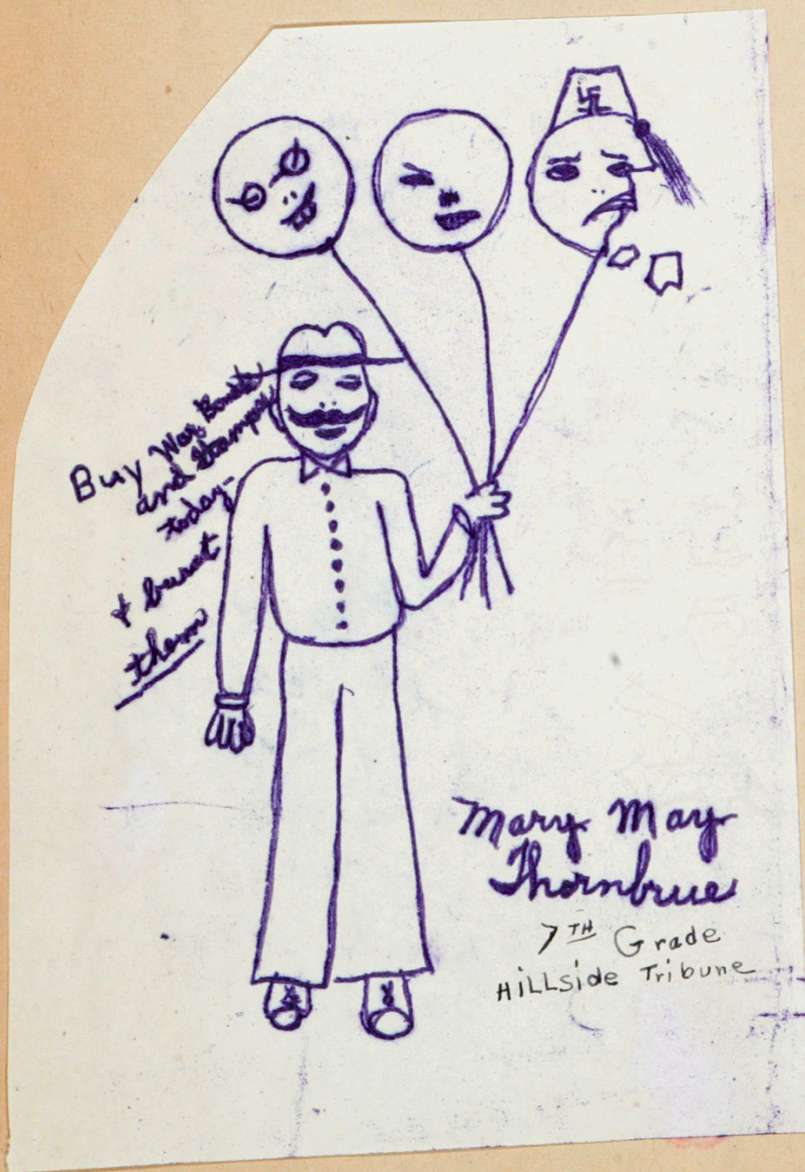 Buy War Bonds
and Stamps
today-
+ burst
them
Mary May
Thornbrue
7TH Grade
Hillside Tribune